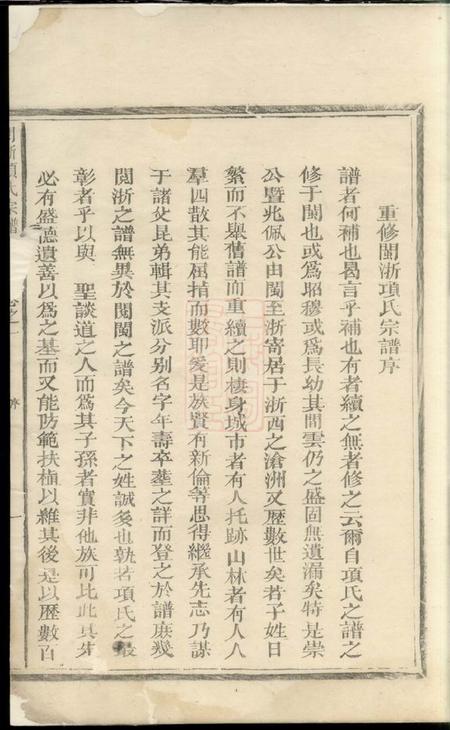 重修閩浙項氏宗譜序
譜者何補也曷言乎補也有者續之無者修之云爾自項氏之譜之
修于閩也或爲昭穆或爲長幼其間雲仍之盛固無遺漏矣特是崇
公暨兆佩公由閩至浙寄居于浙西之滄洲又歷數世矣若子姓日
繁而不舉舊譜而重續之則棲身城市者有人托跡山林者有人人
羣四散其能屈指而數耶爰是族賢有新倫等思得繼承先志乃謀
于諸父昆弟輯其支派分别名字年壽卒塟之詳而登之於譜庻幾
閲浙之譜無異於閲閩之譜矣今天下之姓誠多也孰若項氏之最
彰者乎以與 聖談道之人而爲其子孫者實非他族可比此其先
必有盛德遺善以爲之基而又能防範扶植以維其後是以歷數百
閩浙項氏宗譜 卷之一 序 一